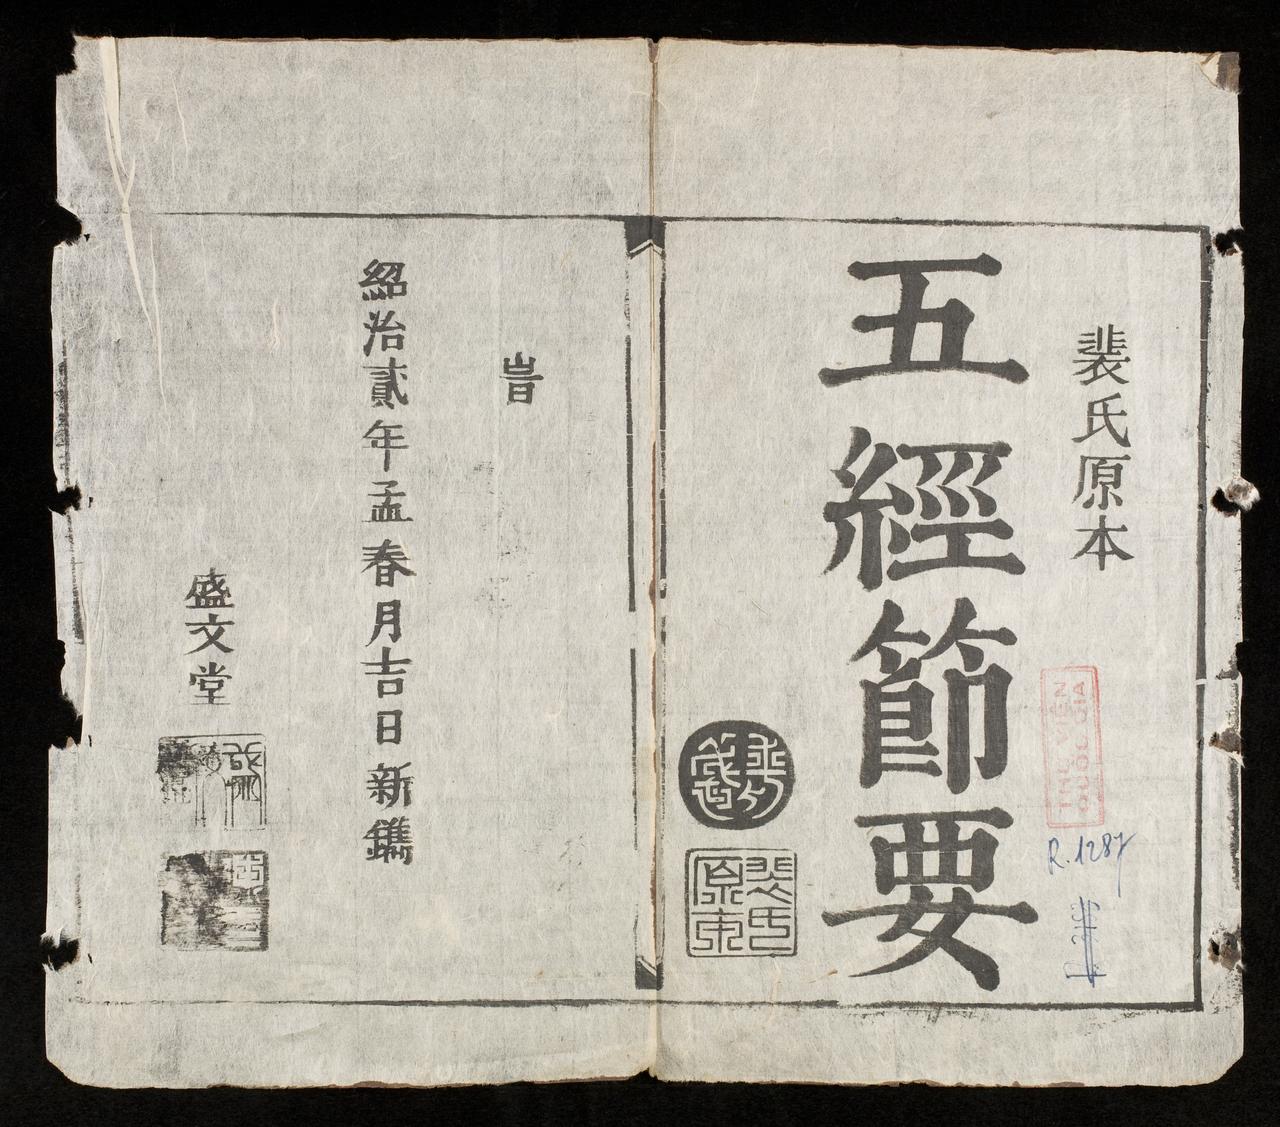 裴氏原本
五經節要
裴氏原本
THƯ VIỆN
QUỐC GIA
R.1287
旹
紹治貳年孟春月吉日新鐫
盛文堂